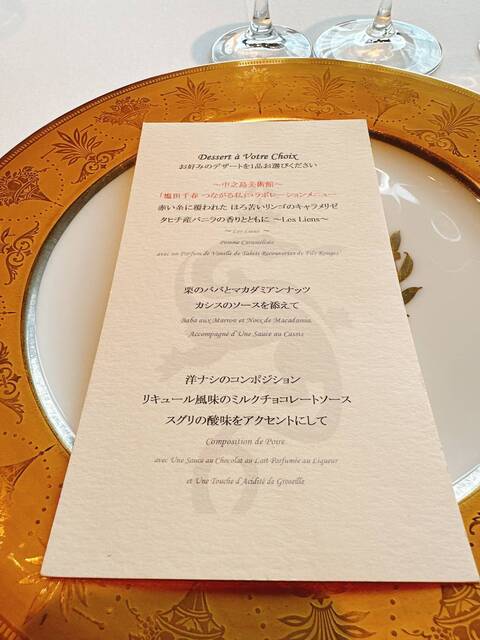 Dessert à Votre Choix
お好みのデザートを1品お選びください
～中之島美術館～
「塩田千春 つながる私」コラボレーションメニュー
赤い糸に覆われた ほろ苦いリンゴのキャラメリゼ
タヒチ産バニラの香りとともに ～Les Liens～
～ Les Liens ～
Pomme Caramélisée
avec un Parfum de Vanille de Tahiti Recouvertes de Fils Rouges
栗のババとマカダミアンナッツ
カシスのソースを添えて
Baba aux Marron et Noix de Macadamia,
Accompagné d'Une Sauce au Cassis
洋ナシのコンポジション
リキュール風味のミルクチョコレートソース
スグリの酸味をアクセントにして
Composition de Poire
avec Une Sauce au Chocolat au Lait Parfumée au Liqueur
et Une Touche d'Acidité de Groseille